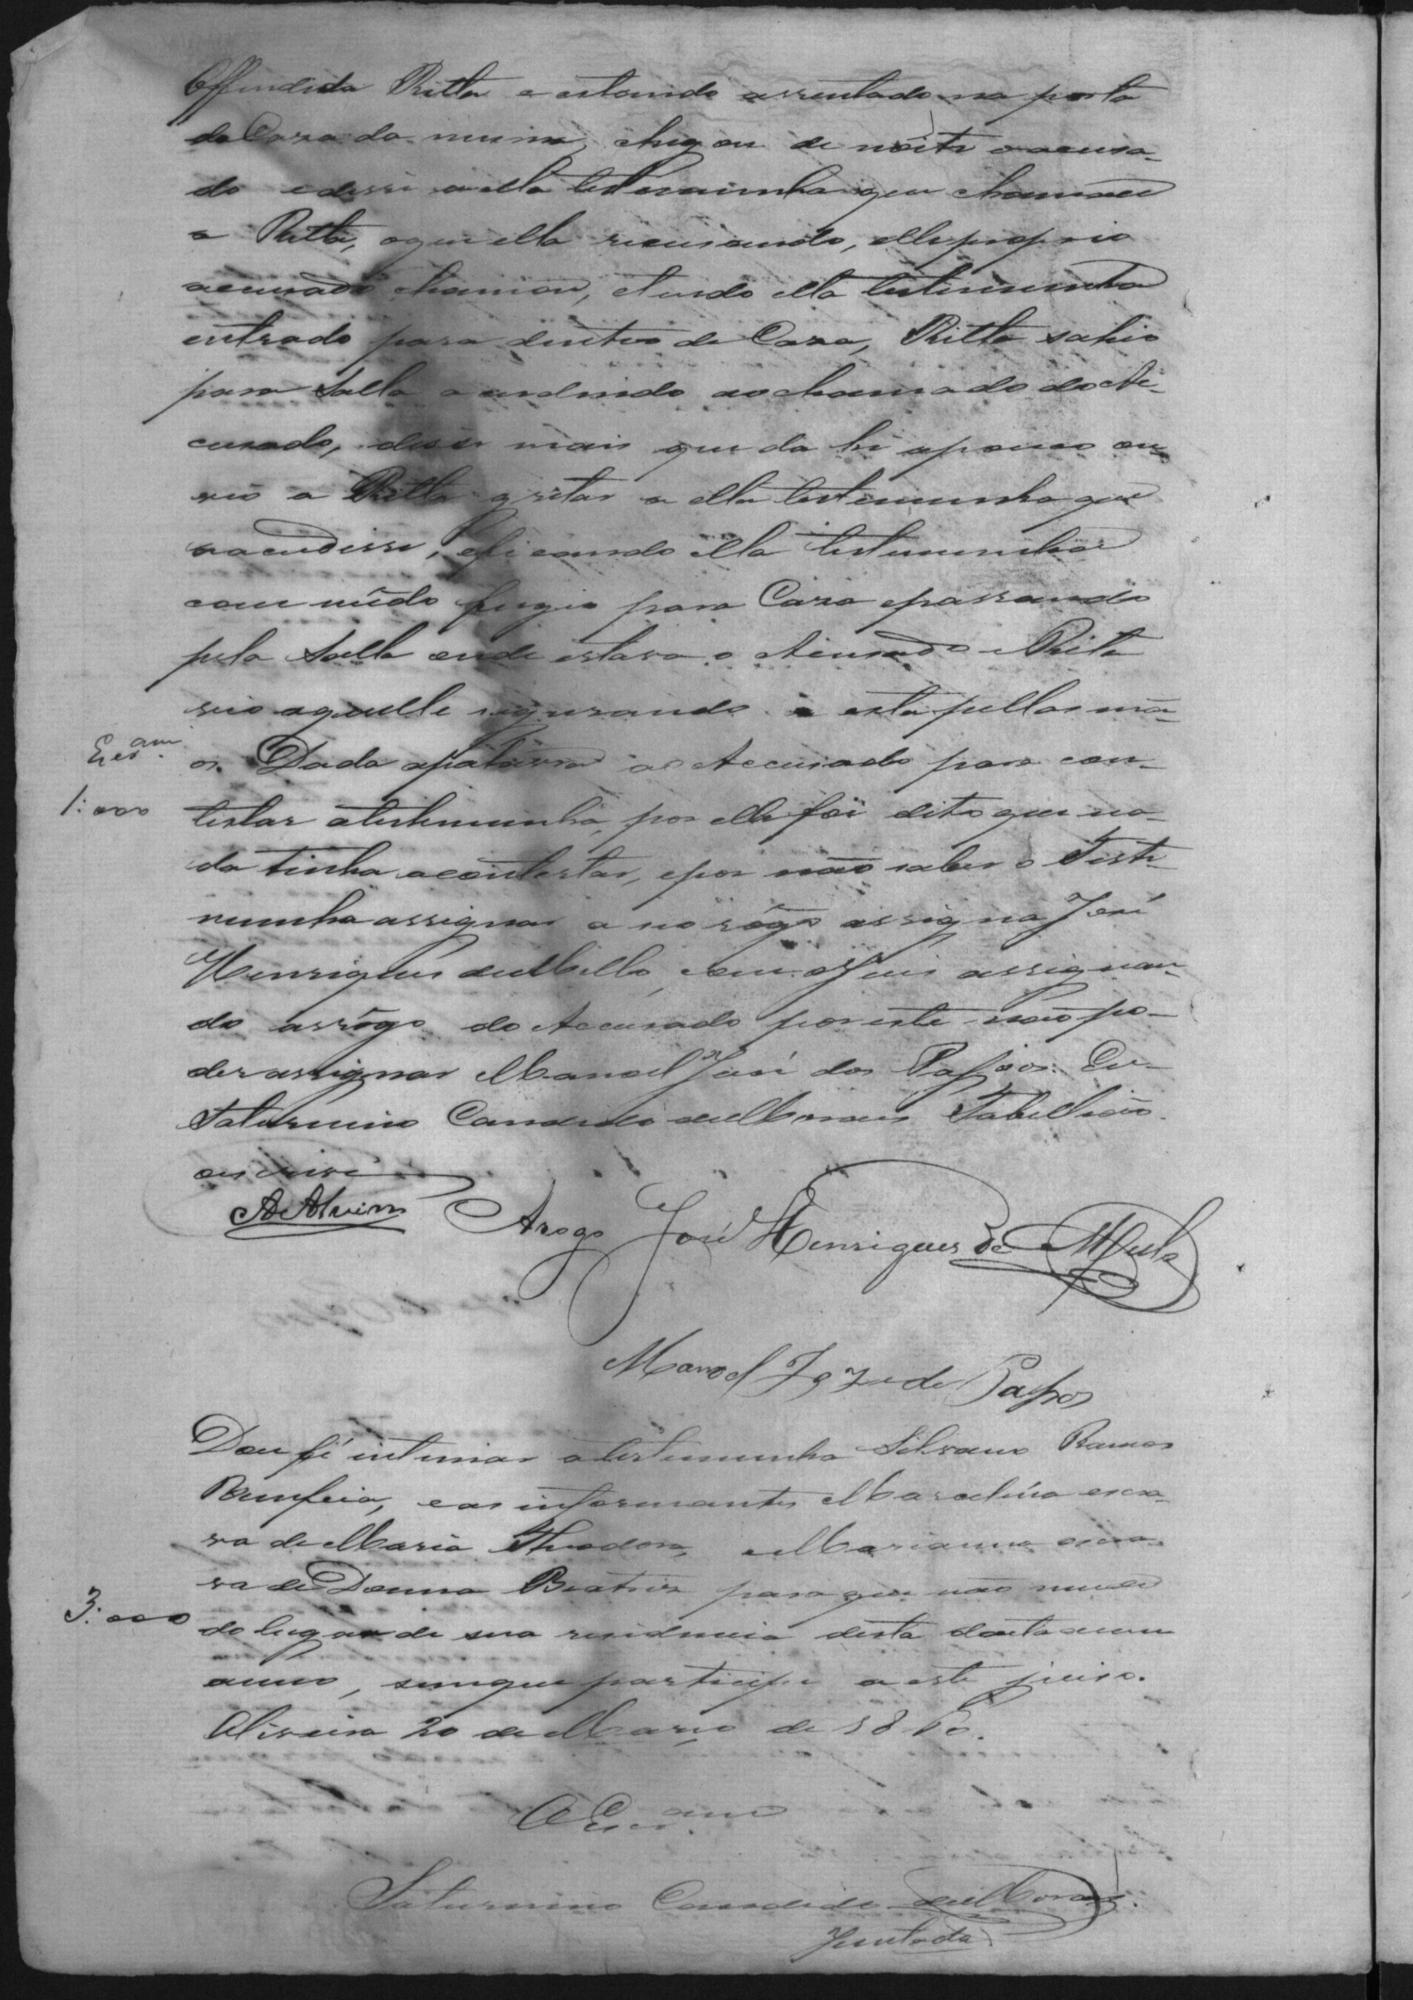 Offendida Ritta e estando assentado na porta
da Caza da mesma, chegou de noite o acusa-
do e disse a ella testemunha que chamasse
a Ritta, o que ella recusando, elle proprio
accusado chamou, e tendo ella testemunha
entrado para dentro de Caza, Ritta sahio
para Salla acudindo ao chamado do Ac-
cusado, disse mais que da hi a pouco ou-
vio a Ritta gritar a ella testemunha que
acudisse, e ficando ella testemunha
com mêdo fugio para Caza e passando
pela Salla onde estava o Acusado e Rita
vio aquelle segurando a esta pellas mã-
os. Dada a palavra ao Accusado para con-
testar a testemunha, por elle foi dito que na-
da tinha a contestar, e por não saber a Teste-
munha assignar a seo rôgo assigna José
Henriques de Mello, com o Juis assignan-
do arrôgo do Accusado por este não po-
der assignar Manoel José dos Passos. Eu
Saturnino Candido de Moraes Tabellião
escrivi
Escram
1:000
A Alvim Arogo José Henriques de Mello
Manoel Joze de Passos
Dou fé intimar a testemunha Silvano Ramos
, e as informantes Marcelina escra-
va de Maria Theodora, e Marianna escra-
va de Donna Beatriz para que não mude
do lugar de sua residencia desta data a um
anno, sem que participe a este juiso.
3:000
Oliveira 20 de Março de 18
O Escram
Saturnino Candido de Moraes
Juntada